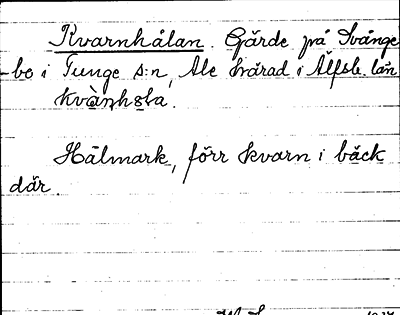 Kvarnhålan. Gärde på Svänge
-bo i Tunge s:n, Ale härad i Älfsb. län
Hålmark, förr kvarn i bäck
där.